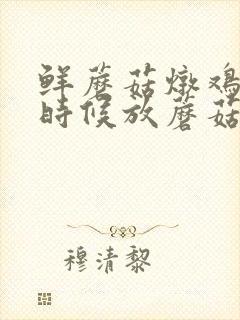 鲜蘑菇燉鸡
時候放蘑菇
穆清黎